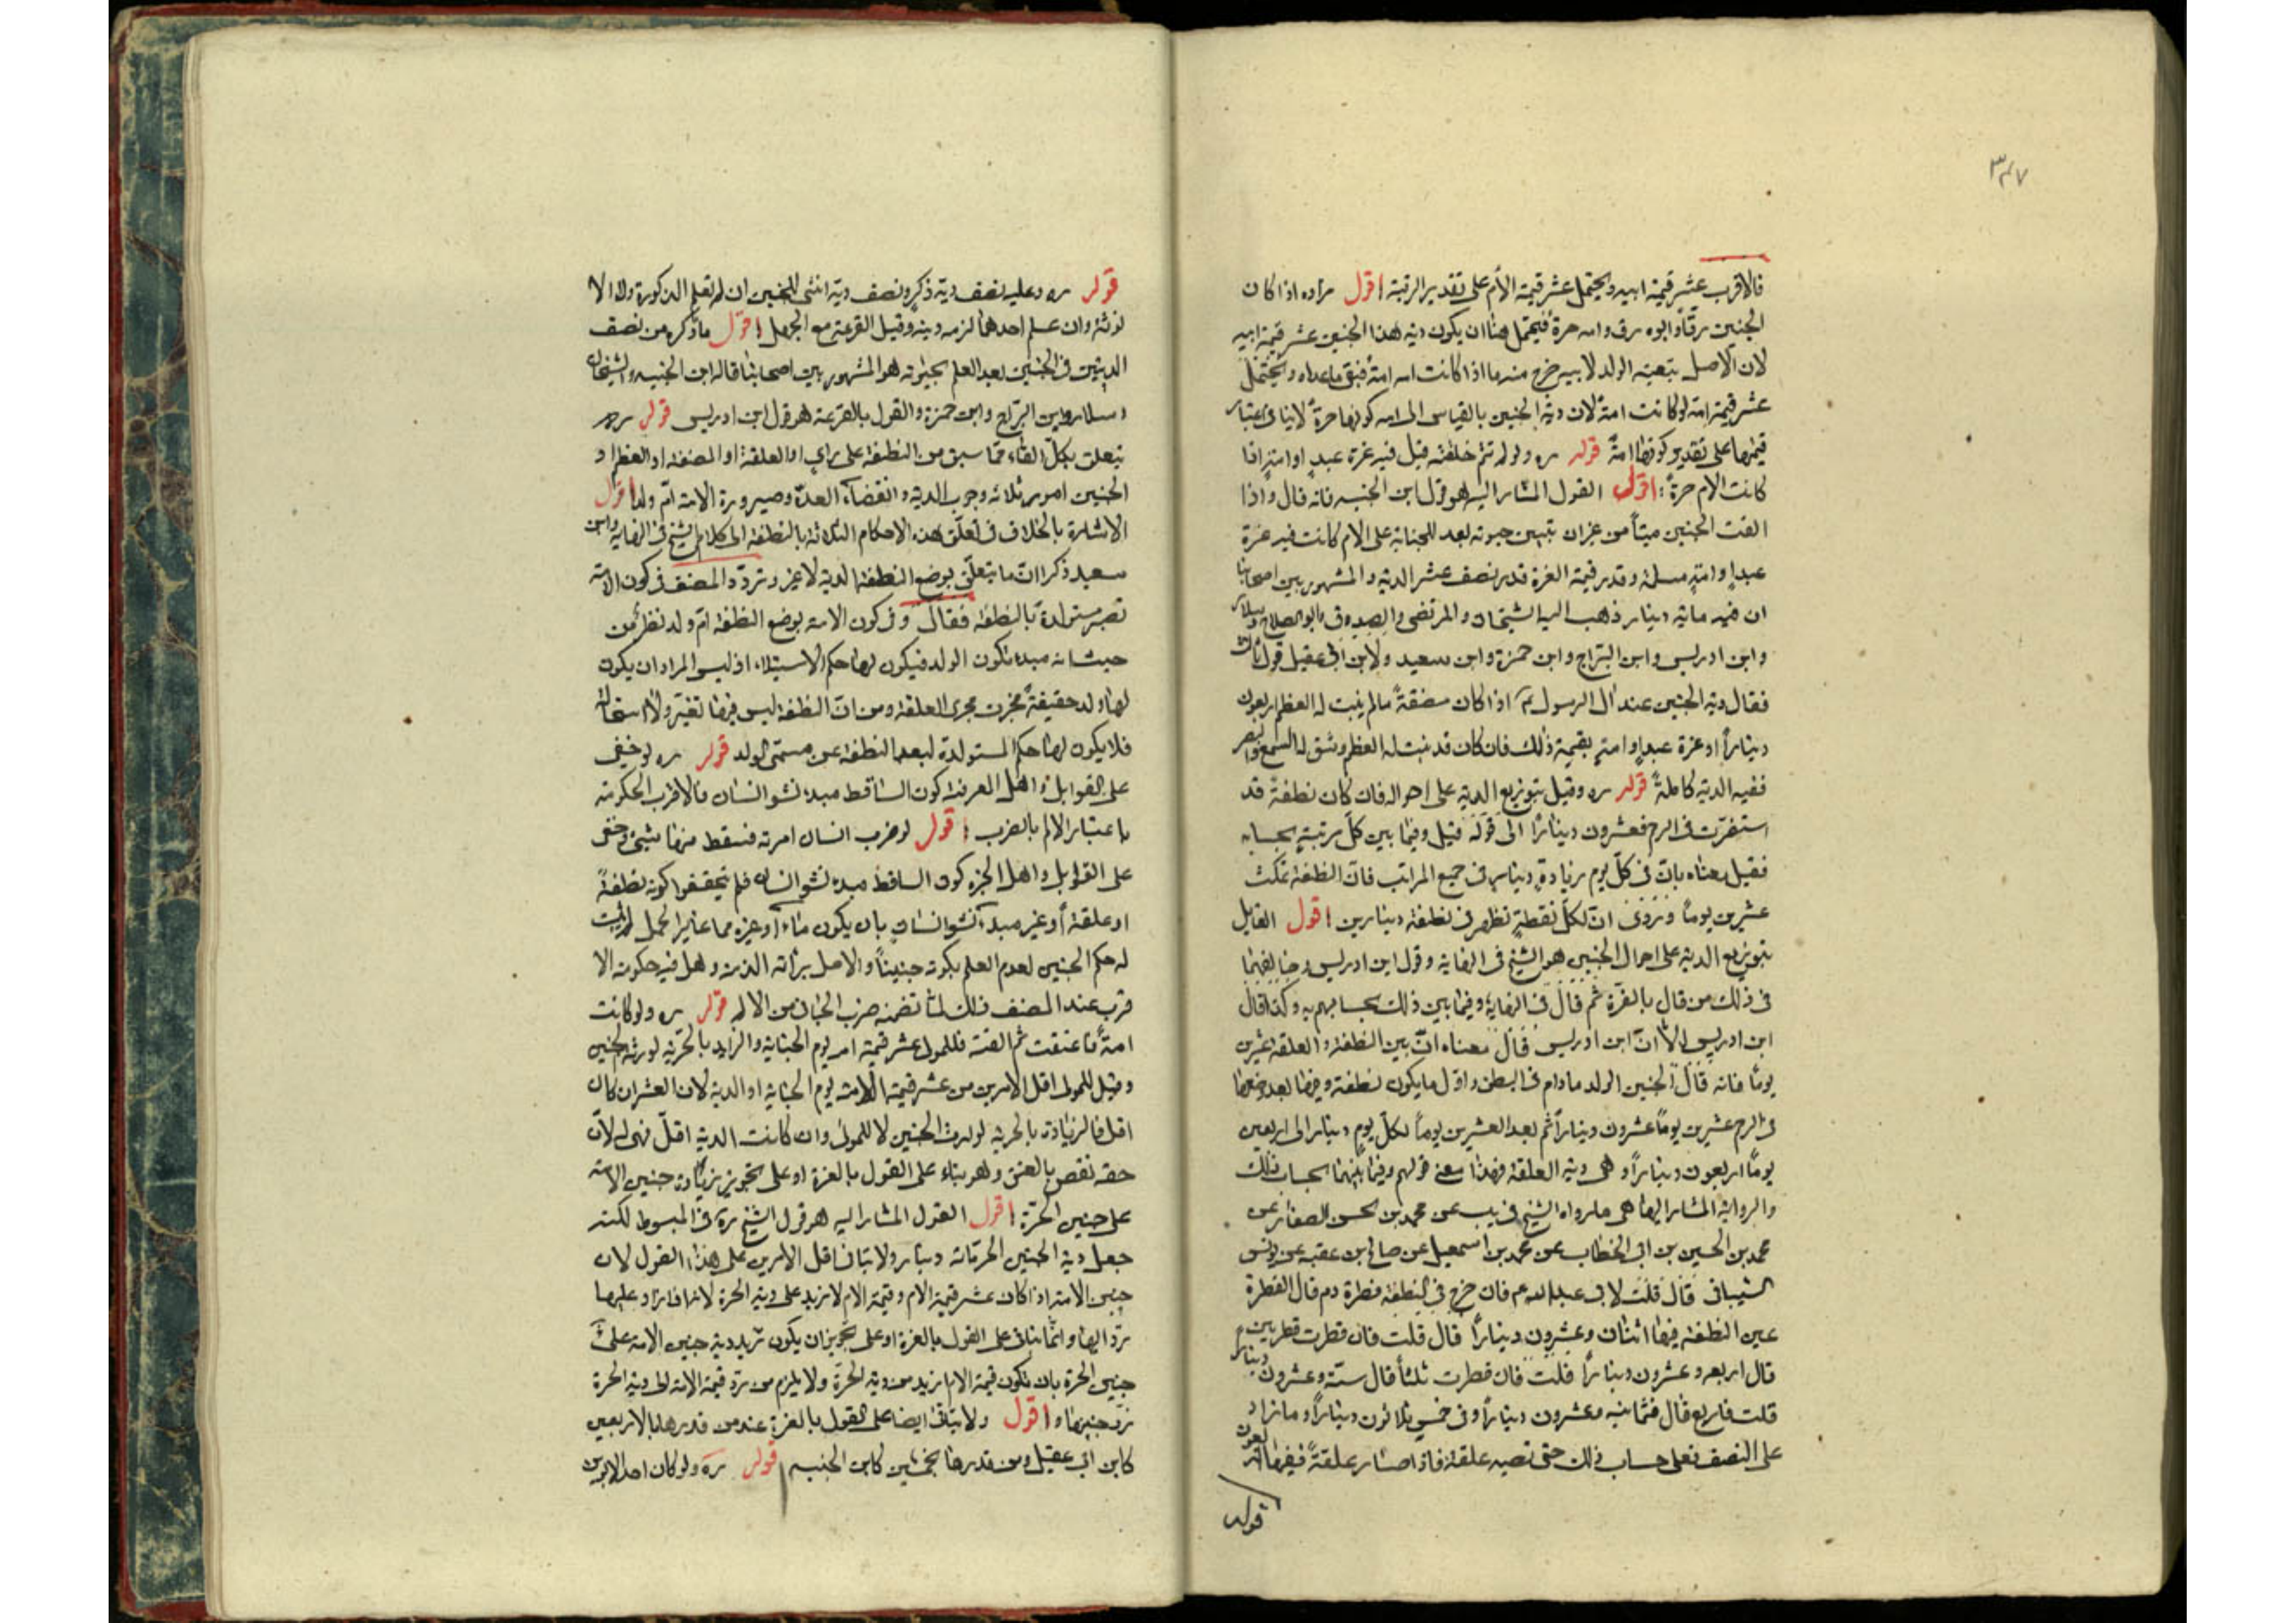 ٣٤٧
فالاقرب عشر قيمة ابيه ويحتمل عشر قيمة الأم على تقدير الرقية اقول مراده اذا كان
الجنين رقّاً وابوه رق وامه حرةً فيحتمل هنا ان يكون دية هذا الجنين عشر قيمة ابيه
لان الاصل تبعية الولد لابيه خرج منه ما اذا كانت امه امةً فبقى ماعداه ويحتمل
عشر قيمة امه لو كانت امةً لان دية الجنين بالقياس الى امه كونها حرةً لا ينافى اعتبار
قيمتها على تقدير كونها امةً قوله ره ولو لم تتم خلقته قيل فيه غرة عبدٍ او امةٍ اذا
كانت الام حرةً اقول القول المشار اليه هو قول ابن الجنيد فانه قال واذا
القت الجنين ميتاً من غير ان تتبين حيوته بعد الجناية على الام كانت فيه غرة
عبدٍ او امةٍ مسلمة وقدر قيمة الغرة قدر نصف عشر الدية والمشهور بين اصحابنا
ان فيه مائة دينار ذهب اليه الشيخان والمرتضى والصدوق وابو الصلاح وسلار
وابن ادريس وابن البراج وابن حمزة وابن سعيد ولابن ابى عقيل قول ثالث
فقال دية الجنين عند ال الرسول ع اذا كان مضغةً ما لم ينبت له العظم اربعون
ديناراً او غرة عبدٍ او امةٍ بقيمة ذلك فان كان قد نبت له العظم وشق له السمع والبصر
ففيه الدية كاملةً قوله ره وقيل بتوزيع الدية على احواله فان كان نطفةً قد
استقرت فى الرحم فعشرون ديناراً الى قوله قيل وفيما بين كل مرتبةٍ بحسابه
فقيل معناه بان فى كل يوم زيادة دينارٍ فى جميع المراتب فان النطفة تمكث
عشرين يوماً وروى انّ لكلّ نقطةٍ تظهر فى نطفة دينارين اقول القايل
بتوزيع الدية على احوال الجنين هو الشيخ فى النهاية وقول ابن ادريس وخالفهما
فى ذلك من قال بالغرّة ثم قال فى النهاية وفيما بين ذلك بحسابهم به وكذا قال
ابن ادريس الا انّ ابن ادريس قال معناه انّ بين النطفة والعلقة عشرين
يوماً فانه قال الجنين الولد ما دام فى البطن واول ما يكون نطفة وفيها بعد وضعها
فى الرحم عشرين يوماً عشرون ديناراً ثم بعد العشرين يوماً لكل يومٍ دينار الى اربعين
يوماً اربعون ديناراً وهى دية العلقة فهذا معنى قولهم وفيما بينهما بحساب ذلك
والرواية المشار اليها هى ما رواه الشيخ فى يب عن محمد بن الحسن الصفار عن
محمد بن الحسين بن ابى الخطاب عن محمد بن اسمعيل عن صالح بن عقبه عن يونس
الشيبانى قال قلت لابى عبد الله عم فان خرج فى النطفة قطرة دم قال القطرة
عين النطفة فيها اثنان وعشرون ديناراً قال قلت فان قطرت قطرتين
قال اربعه وعشرون ديناراً قلت فان قطرت ثلثاً قال ستّه وعشرون ديناراً
قلت فاربع قال فثمانيه وعشرون ديناراً وفى خمس ثلاثون ديناراً وما زاد
على النصف فعلى حساب ذلك حتى تصير علقة فاذا صار علقةً ففيها اربعون
قوله
قوله ره وعليه نصف دية ذكر ونصف دية انثى للجنين ان لم تعلم الذكورة ولا الا
نوثة وان علم احدهما لزمه ديته وقيل القرعة مع الجهل اقول ما ذكره من نصف
الديتين فى الجنين بعد العلم بحيوته هو المشهور بين اصحابنا قاله ابن الجنيد والشيخان
وسلار وابن البراج وابن حمزة والقول بالقرعة هو قول ابن ادريس قوله ره
يتعلق بكلّ القاء مما سبق من النطفة على راى او العلقة او المضغة او العظم او
الجنين امور ثلاثه وجوب الدية وانقضاء العدّة وصيرورة الامة امّ ولد اقول
الاشارة بالخلاف فى تعلق هذه الاحكام الثلاثة بالنطفة الى كلام الشيخ فى النهاية وابن
سعيد ذكرا انّ ما يتعلق بوضع النطفة الدية لا غير وتردّد المصنف فى كون الامة
تصير مستولدة بالنطفة فقال وفى كون الامة بوضع النطفة ام ولد نظر من
حيث انه مبدء تكون الولد فيكون لها حكم الاستيلاد اذ ليس المراد ان يكون
لها ولد حقيقةً فجرت مجرى العلقة ومن انّ النطفة ليس فيها تغيّر ولا استحالة
فلا يكون لها حكم المستولدة لبعد النطفة عن مسمّى الولد قوله ره لو خفى
على القوابل واهل المعرفة كون الساقط مبدء نشو انسان فالاقرب الحكومة
باعتبار الالم بالضرب اقول لو ضرب انسان امرءة فسقط منها شيئ وخفى
على القوابل واهل الخبره كون الساقط مبدء نشو انسان فلم يتحققوا كونه نطفةً
او علقة او غير مبدء نشو انسانٍ بان يكون ماء او غيره مما غاير الحمل لم يثبت
له حكم الجنين لعدم العلم بكونه جنيناً والاصل براءة الذمة وهل فيه حكومة الا
قرب عند المصنف ذلك لما تضمنه ضرب الجانى من الالم قوله ره ولو كانت
امةً فاعتقت ثم القته فللمولى عشر قيمة امه يوم الجناية والزايد بالحرّية لورثة الجنين
وقيل للمولى اقل الامرين من عشر قيمة الامة يوم الجناية او الدية لان العشر ان كان
اقل فالزيادة بالحرية لوارث الجنين لا للمولى وان كانت الدية اقلّ فهى له لانّ
حقه نقص بالعتق وهو بناء على القول بالغرة او على تجويز زيادة جنين الامة
على جنين الحرّة اقول القول المشار اليه هو قول الشيخ ره فى المبسوط لكنه
جعل دية الجنين الحر مائة دينار ولا يتاتى اقل الامرين على هذا القول لان
جنين الامة اذا كان عشر قيمة الام وقيمة الام لا تزيد على دية الحرة لانها اذا زاد عليها
ردّ اليها وانّما يتاتى على القول بالغرة او على تجويز ان يكون تزيد دية جنين الامة على
جنين الحرة بان تكون قيمة الام ازيد من دية الحرّة ولا يلزم من ردّ قيمة الامة الى دية الحرة
ردّ جنينها واقول ولا يتاتى ايضا على القول بالغرة عند من قدرها بالاربعين
كابن ابى عقيل ومن قدرها بخمسين كابن الجنيد قوله ره ولو كان احد الابوين